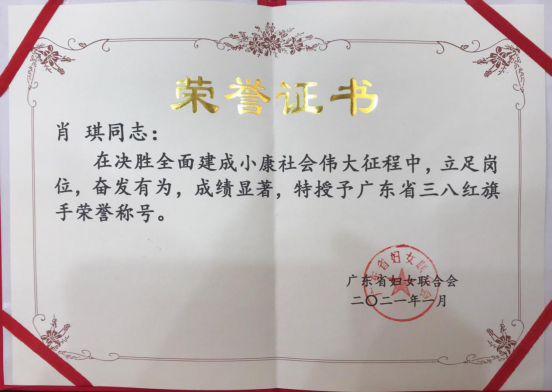 荣誉证书
肖 琪同志：
在决胜全面建成小康社会伟大征程中，立足岗
位，奋发有为，成绩显著，特授予广东省三八红旗
手荣誉称号。
广东省妇女联合会
广东省妇女联合会
二〇二一年一月